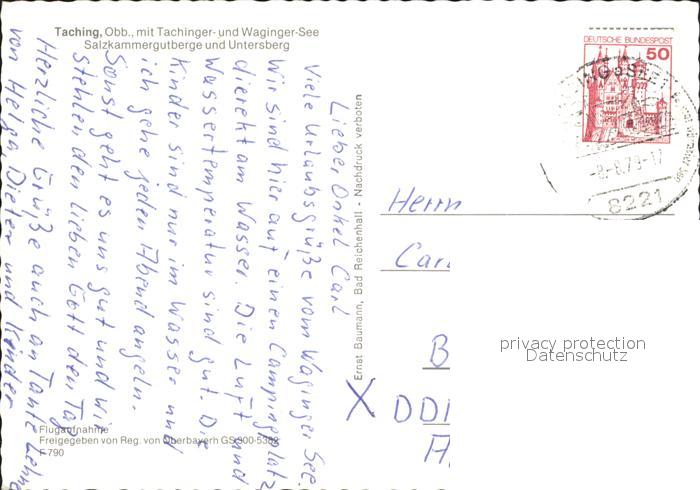 Taching, Obb., mit Tachinger- und Waginger-See
Salzkammergutberge und Untersberg
Lieber Onkel Carl
Viele Urlaubsgrüße vom Waginger See.
Wir sind hier auf einen Campingplatz
direkt am Wasser. Die Luft und
Wassertemperatur sind gut. Die
Kinder sind nur im Wasser und
ich gehe jeden Abend angeln.
Sonst geht es uns gut und wir
stehlen den lieben Gott den Tag
Herzliche Grüße auch an Tante
von Helga Dieter und Kinder
Flugaufnahme
Freigegeben von Reg. von Oberbayern GS 300-5382
F 790
Ernst Baumann, Bad Reichenhall - Nachdruck verboten
DEUTSCHE BUNDESPOST
50
8221
Herrn
Car
B
X DD
A
privacy protection
Datenschutz